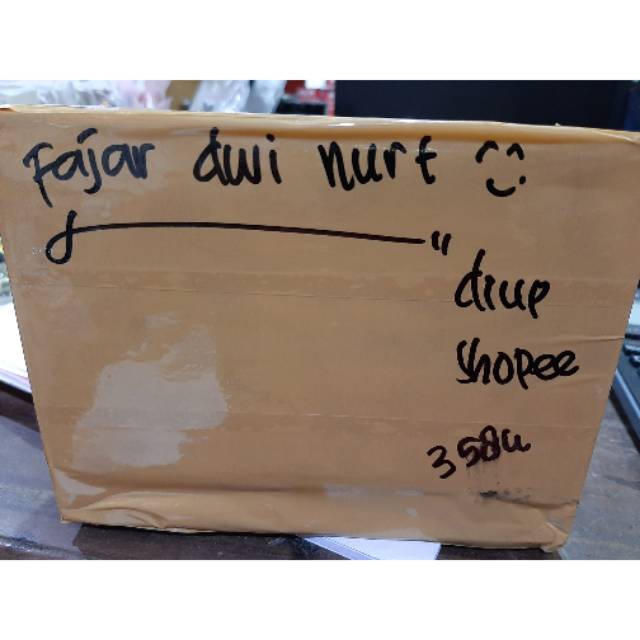 Fajar dwi nurt
diup
shopee